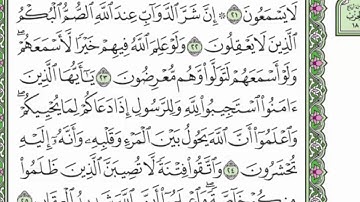 لَا يَسْمَعُونَ ٢١ ۞ إِنَّ شَرَّ ٱلدَّوَآبِّ عِندَ ٱللَّهِ ٱلصُّمُّ ٱلْبُكْمُ
ٱلَّذِينَ لَا يَعْقِلُونَ ٢٢ وَلَوْ عَلِمَ ٱللَّهُ فِيهِمْ خَيْرًا لَّأَسْمَعَهُمْ ۖ
وَلَوْ أَسْمَعَهُمْ لَتَوَلَّوا۟ وَّهُم مُّعْرِضُونَ ٢٣ يَٰٓأَيُّهَا ٱلَّذِينَ
ءَامَنُوا۟ ٱسْتَجِيبُوا۟ لِلَّهِ وَلِلرَّسُولِ إِذَا دَعَاكُمْ لِمَا يُحْيِيكُمْ ۖ
وَٱعْلَمُوٓا۟ أَنَّ ٱللَّهَ يَحُولُ بَيْنَ ٱلْمَرْءِ وَقَلْبِهِۦ وَأَنَّهُۥٓ إِلَيْهِ
تُحْشَرُونَ ٢٤ وَٱتَّقُوا۟ فِتْنَةً لَّا تُصِيبَنَّ ٱلَّذِينَ ظَلَمُوا۟